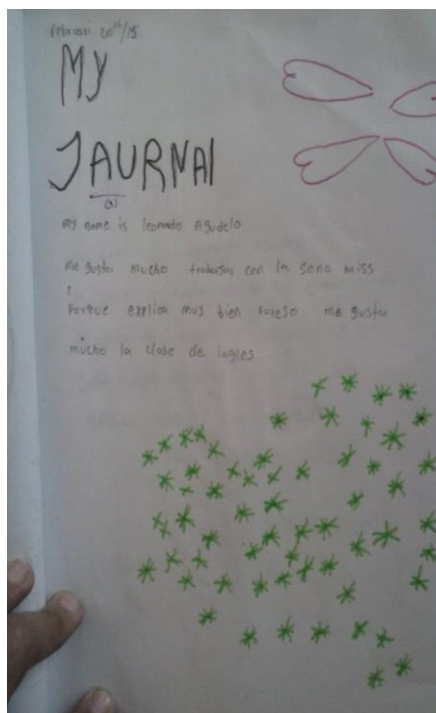 Februari 20th/15
MY
JAURNAl
(o)
my name is leonardo Agudelo
me gusta mucho trabajar con la seño miss
Porque explica muy bien Poreso me gusta
mucho la clase de ingles